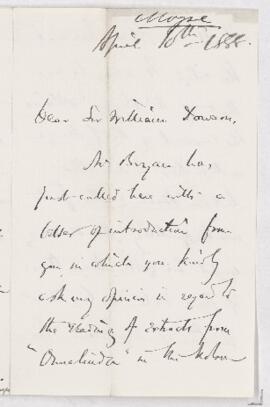 Moyse
April 10th 1888.
Dear Sir William Dawson,
Mr Bryan has
just called here with a
letter of introduction from
you in which you kindly
ask my opinion in regard to
the reading of extracts from
in the